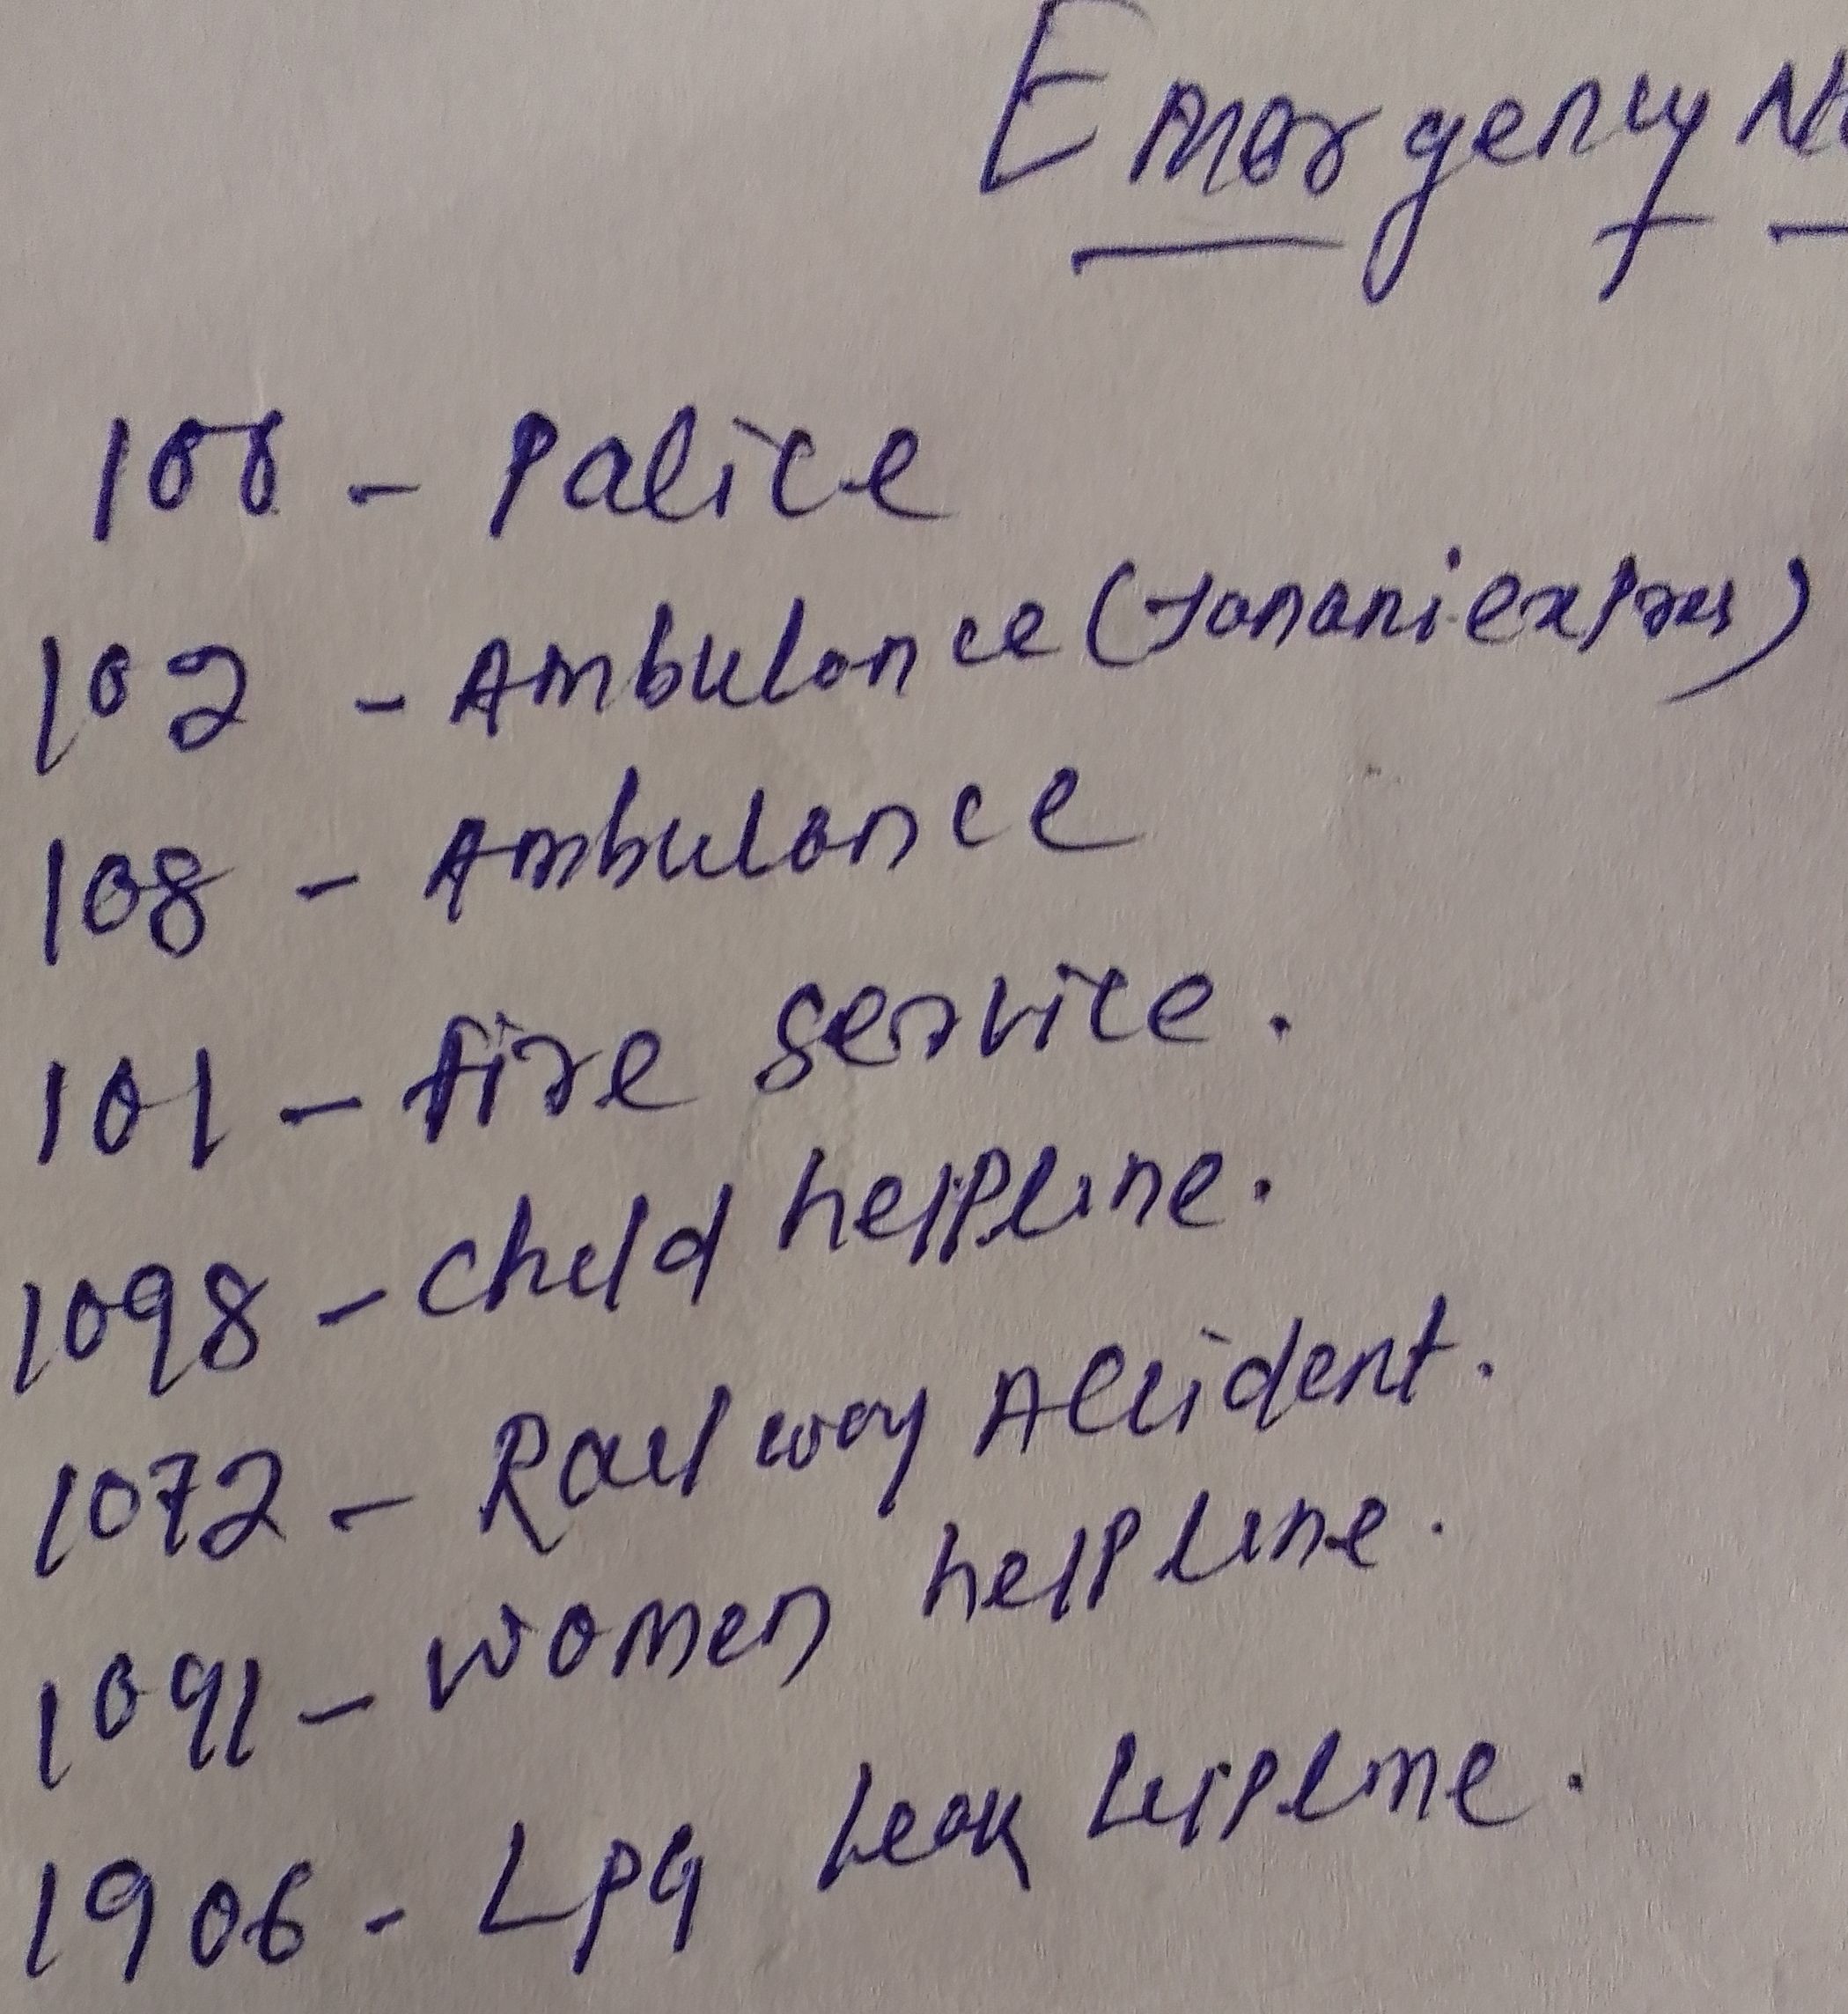 Emergency N
100 - Palice
102 - Ambulance (Janani expres)
108 - Ambulance
101 - fire service.
1098 - child helpline.
1072 - Railway Accident.
1091 - women helpline.
1906 - LPG Leak helpline.